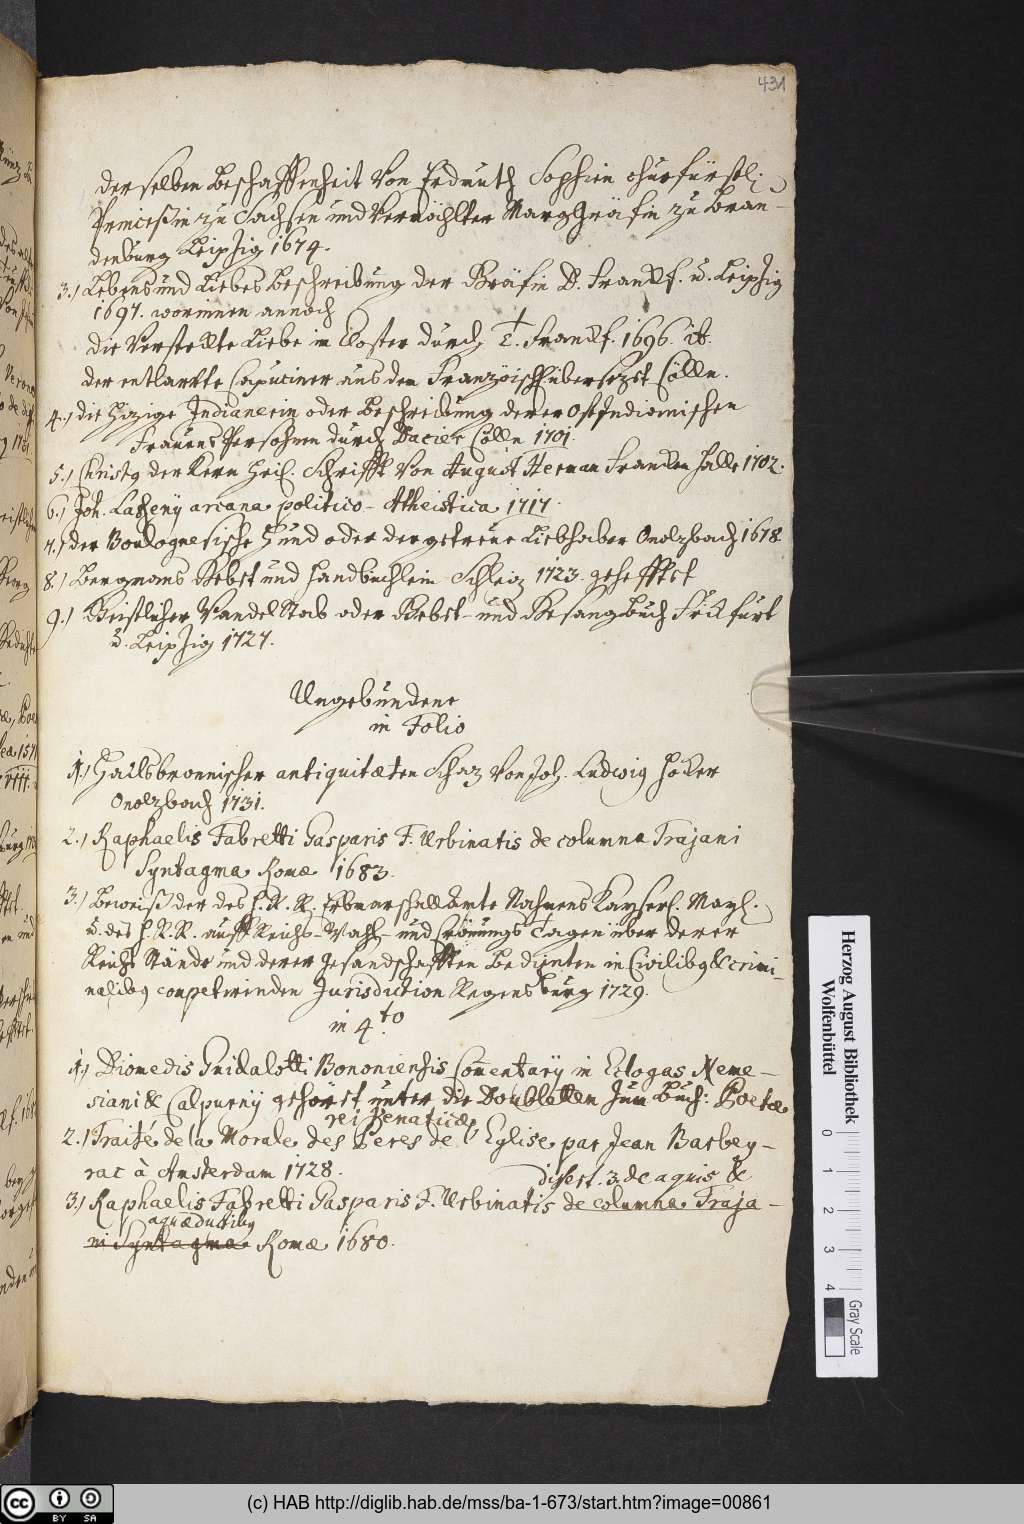 431
derselben Beschaffenheit Von Erdmuth Sophien Churfürstl:
Princeßin zu Sachsen und Vermählter MargGräfin zu Bran-
denburg Leipzig 1674.
3.) Lebens und Liebes Beschreibung der Gräfin D. Franckf. u. Leipzig
1697. worinnen annoch
die Verstellte Liebe im Closter durch T. Franckf. 1696. it.
der entlarvte Capuciner aus dem Französisch übersezt Cölln.
4.) die hizige Indianerin oder Beschreibung derer OstIndianischen
Frauens Persohnen durch Dacier Cölln 1701.
5.) Christg der Kern Heil. Schrifft Von August Herman Francken Halle 1702.
6.) Joh. Lasseny arcana politico-Atheistica 1717.
7.) der Boulognesische Hund oder der getreue Liebhaber Onolzbach 1678.
8.) Bergmans Gebet und Handbüchlein Schleiz 1723. gehefftet
9.) Geistlicher Wandel Stab oder Gebet- und Gesangbuch Frckfurt
u. Leipzig 1727.
Ungebundene
in Folio
1.) Hailsbronnischer antiquitæten Schaz Von Joh. Ludwig Hocker
Onolzbach 1731.
2.) Raphaelis Fabretti Gasparis F. Urbinatis de columna Trajani
Syntagma Romæ 1683.
3.) Beweiß der des H. R. R. Erbmarschall Amte Nahmens Kayserl. Mayl.
u. des H. R. R. auff Reichs-Wahl- und Crönungs Tagen über derer
Reichs Stände und derer Gesandschafften Bedienten in Civilibg & crimi-
nalibg competirenden Jurisdiction Regensburg 1729.
in 4.to
1.) Diomedis Guidalotti Bononiensis Comentarÿ in Eclogas Neme-
siani & Calpurnÿ gehöret unter die Doubletten Zum Buch: Poetæ
rei Venaticæ
2.) Traité de la Morale des Peres de l'Eglise par Jean Barbey-
rac à Amsterdam 1728.
dissert. 3. de aquis &
3.) Raphaelis Fabretti Gasparis F. Urbinatis de columna Traja-
aquæductibg
ni Syntagma Romæ 1680.
Herzog August Bibliothek
Wolfenbüttel
0 1 2 3 4
Gray Scale
cc BY SA
(c) HAB http://diglib.hab.de/mss/ba-1-673/start.htm?image=00861